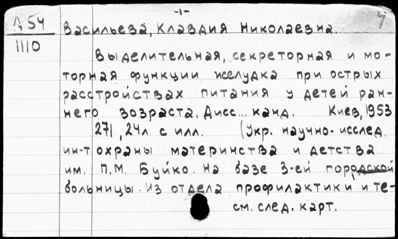 -1-
Д 54
1110
Васильева, Клавдия Николаевна.
Выделительная, секреторная и мо-
торная функции желудка при острых
расстройствах питания у детей ран-
него возраста. Дисс... канд. Киев, 1953
271, 24л. с илл. (Укр. научно-исслед.
ин-т охраны материнства и детства
им. П.М. Буйко. На базе 3-ей городской
больницы. Из отдела профилактики и те-
см. след. карт.